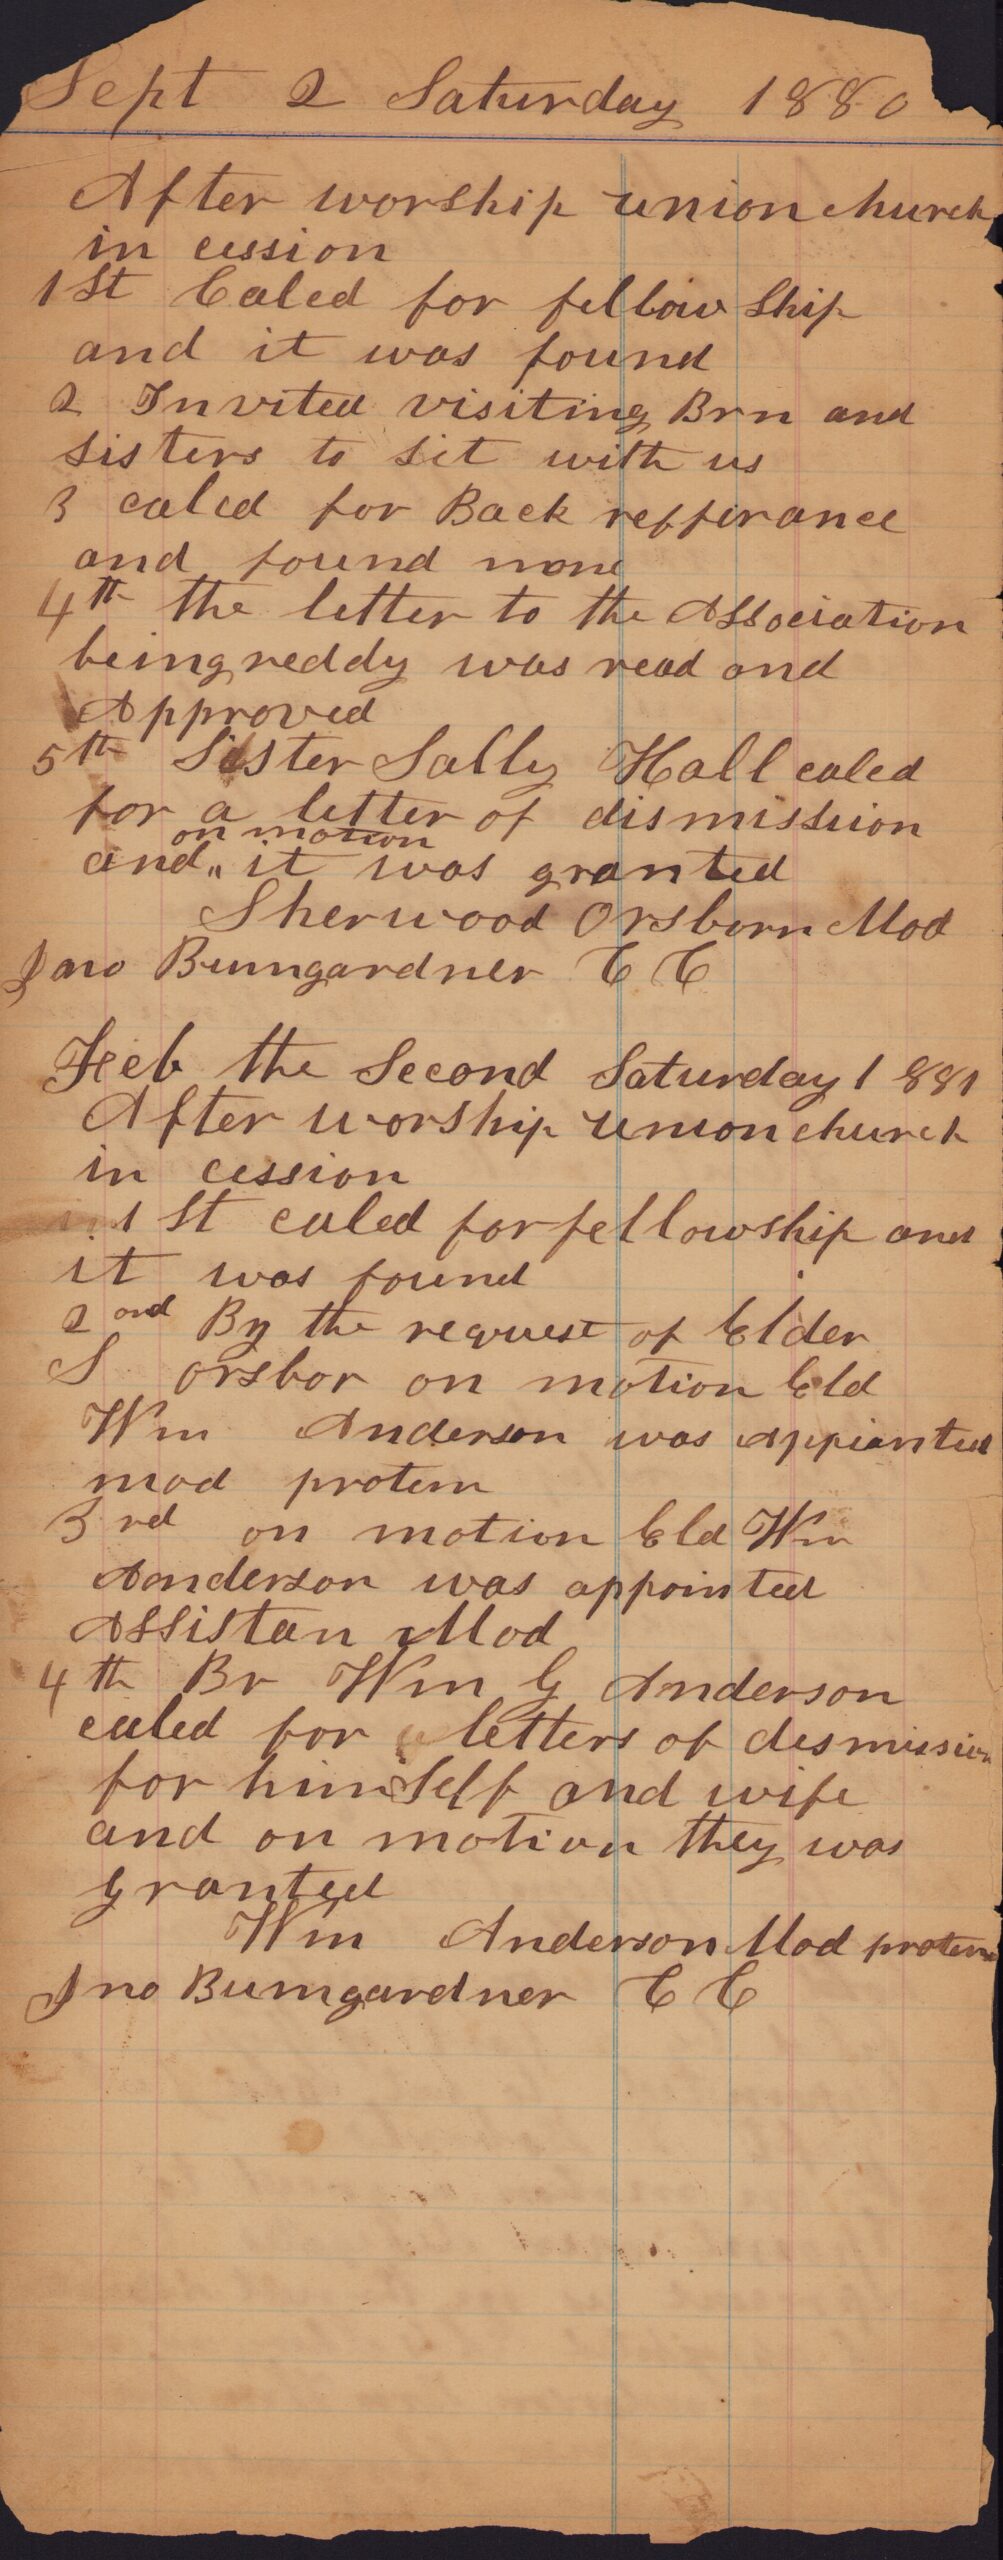 Sept 2 Saturday 1880
After worship union church
in cession
1st Caled for fellow ship
and it was found
2 Invited visiting Brn and
sisters to sit with us
3 caled for Back refferance
and found none
4th the letter to the Association
being reddy was read and
Approved
5th Sister Sally Hall caled
for a letter of dismission
on motion
and " it was granted
Sherwood Orsborn Mod
Jno Bumgardner C C
Feb the Second Saturday 1881
After worship union church
in cession
1st caled for fellowship and
it was found
2ond By the request of Elder
S orsbor on motion Eld
Wm Anderson was appianted
mod protem
3rd on motion Eld Wm
Aanderson was appointed
Assistan Mod
4th Br Wm G Anderson
caled for letters of dismission
for himself and wife
and on motion they was
granted
Wm Anderson Mod protem
Jno Bumgardner C C